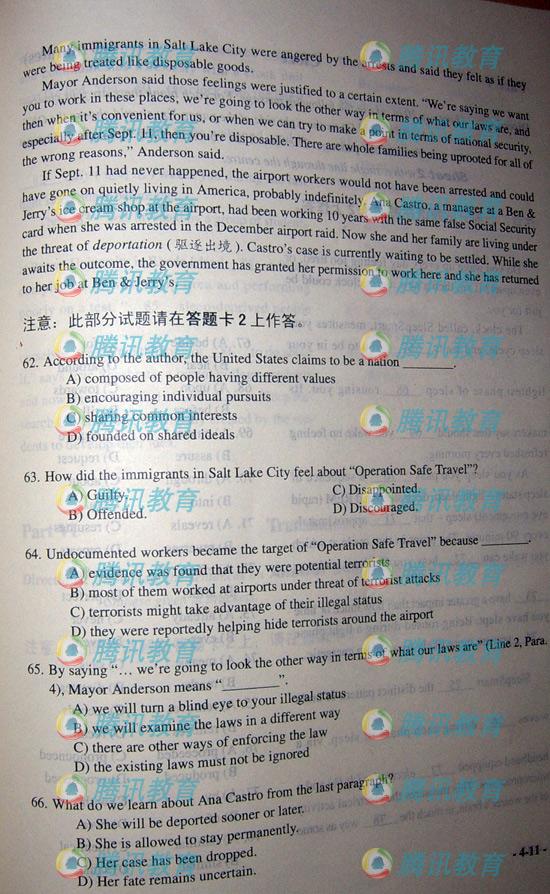 Many immigrants in Salt Lake City were angered by the arrests and said they felt as if they
were being treated like disposable goods.
Mayor Anderson said those feelings were justified to a certain extent. “We’re saying we want
you to work in these places, we’re going to look the other way in terms of what our laws are, and
then when it’s convenient for us, or when we can try to make a point in terms of national security,
especially after Sept. 11, then you’re disposable. There are whole families being uprooted for all of
the wrong reasons,” Anderson said.
If Sept. 11 had never happened, the airport workers would not have been arrested and could
have gone on quietly living in America, probably indefinitely. Ana Castro, a manager at a Ben &
Jerry’s ice cream shop at the airport, had been working 10 years with the same false Social Security
card when she was arrested in the December airport raid. Now she and her family are living under
the threat of deportation (驱逐出境). Castro’s case is currently waiting to be settled. While she
awaits the outcome, the government has granted her permission to work here and she has returned
to her job at Ben & Jerry’s.
注意：此部分试题请在答题卡 2 上作答。
62. According to the author, the United States claims to be a nation ________.
A) composed of people having different values
B) encouraging individual pursuits
C) sharing common interests
D) founded on shared ideals
63. How did the immigrants in Salt Lake City feel about “Operation Safe Travel”?
A) Guilty. C) Disappointed.
B) Offended. D) Discouraged.
64. Undocumented workers became the target of “Operation Safe Travel” because ________.
A) evidence was found that they were potential terrorists
B) most of them worked at airports under threat of terrorist attacks
C) terrorists might take advantage of their illegal status
D) they were reportedly helping hide terrorists around the airport
65. By saying “… we’re going to look the other way in terms of what our laws are” (Line 2, Para.
4), Mayor Anderson means “________”.
A) we will turn a blind eye to your illegal status
B) we will examine the laws in a different way
C) there are other ways of enforcing the law
D) the existing laws must not be ignored
66. What do we learn about Ana Castro from the last paragraph?
A) She will be deported sooner or later.
B) She is allowed to stay permanently.
C) Her case has been dropped.
D) Her fate remains uncertain.
- 4-11 -
腾讯教育